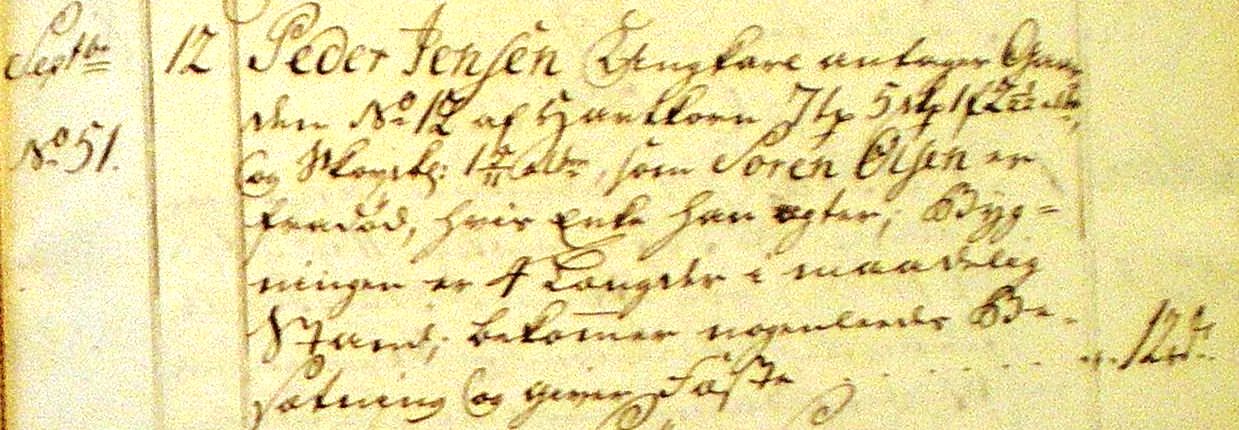 Septbr 12 Peder Jensen Ungkarl antager Gaar
den No 12 af Hartkorn 7tp 5skp 1f 2 alb,
No 51. og Skovsk: 1 alb, som Søren Olsen er
fradød, hvis Enke han egter, Byg=
ningen er 4 Længder i maadelig
Stand, bekommer nogenledes Be-
sætning og giver Fæste . . . . . . 12 rd